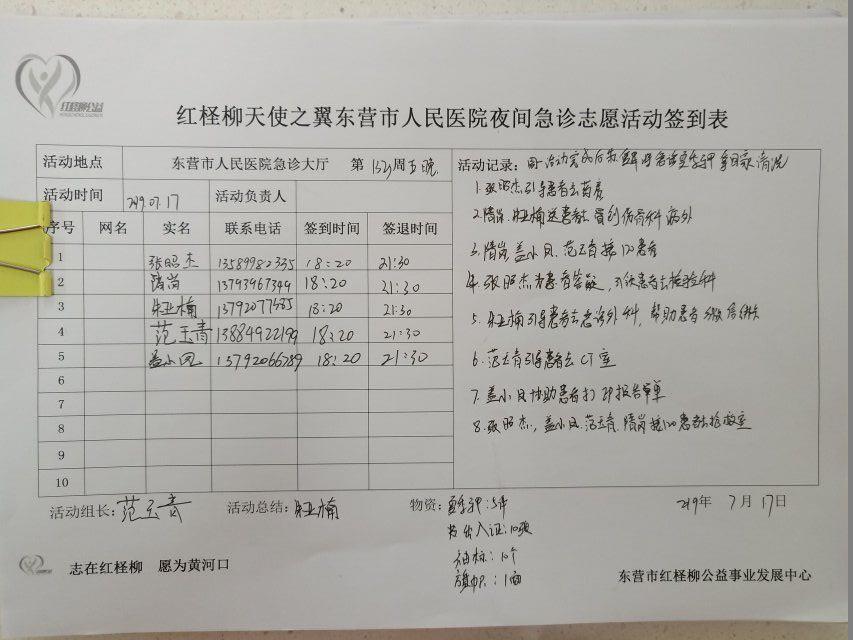 红柽柳公益
红柽柳天使之翼东营市人民医院夜间急诊志愿活动签到表
活动地点 东营市人民医院急诊大厅 第 周五晚
活动时间 2019.07.17 活动负责人
序号 网名 实名 联系电话 签到时间 签退时间
1 张昭杰 13589982335 18:20 21:30
2 隋岗 13793967399 18:20 21:30
3 朱亚楠 18:20 21:30
4 范玉青 13884922199 18:20 21:30
5 盖小凤 13792066789 18:20 21:30
6
7
8
9
10
活动记录:
1.张昭杰引导患者去药房
2.隋岗.朱亚楠送患者
3.隋岗.盖小凤.范玉青接120患者
4.张昭杰为患者答疑,引领患者去检验科
5.朱亚楠引导患者去 外科,帮助患者
6.范玉青引导患者去CT室
7.盖小凤协助患者打印报告单
8.张昭杰,盖小凤.范玉青.隋岗接120患者去抢救室
活动组长:范玉青 活动总结:朱亚楠 物资: :5件
出入证:10张
袖标:10个
旗帜:1面
2019年 7月17日
志在红柽柳 愿为黄河口
东营市红柽柳公益事业发展中心